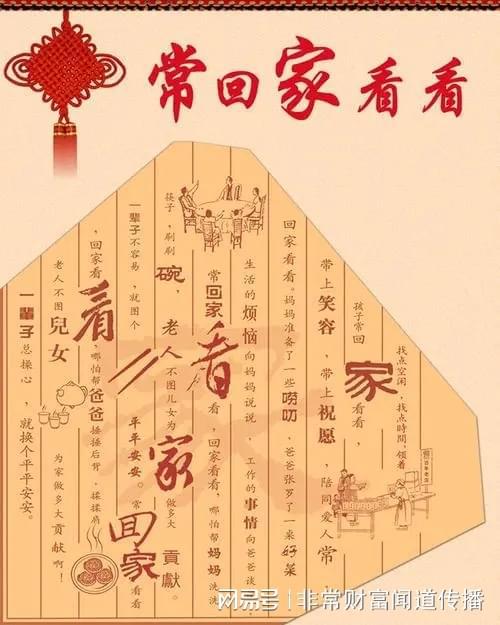 常回家看看
找点空闲，找点時間，领着
孩子常回家看看，
带上笑容，带上祝愿，陪同爱人常，
回家看看。妈妈准备了一些唠叨，爸爸张罗了一桌好菜
生活的烦恼向妈妈说说，工作的事情向爸爸谈
常回家看看，回家看看，哪怕帮妈妈洗洗
筷子，刷刷碗，老人不图儿女为家做多大貢獻。
一辈子不容易，就图个平平安安。常回家看看
，回家看看，哪怕帮爸爸捶捶后背，揉揉肩
老人不图兒女为家做多大贡献啊！
一輩子总操心，就换个平平安安。
网易号 | 非常财富闻道传播